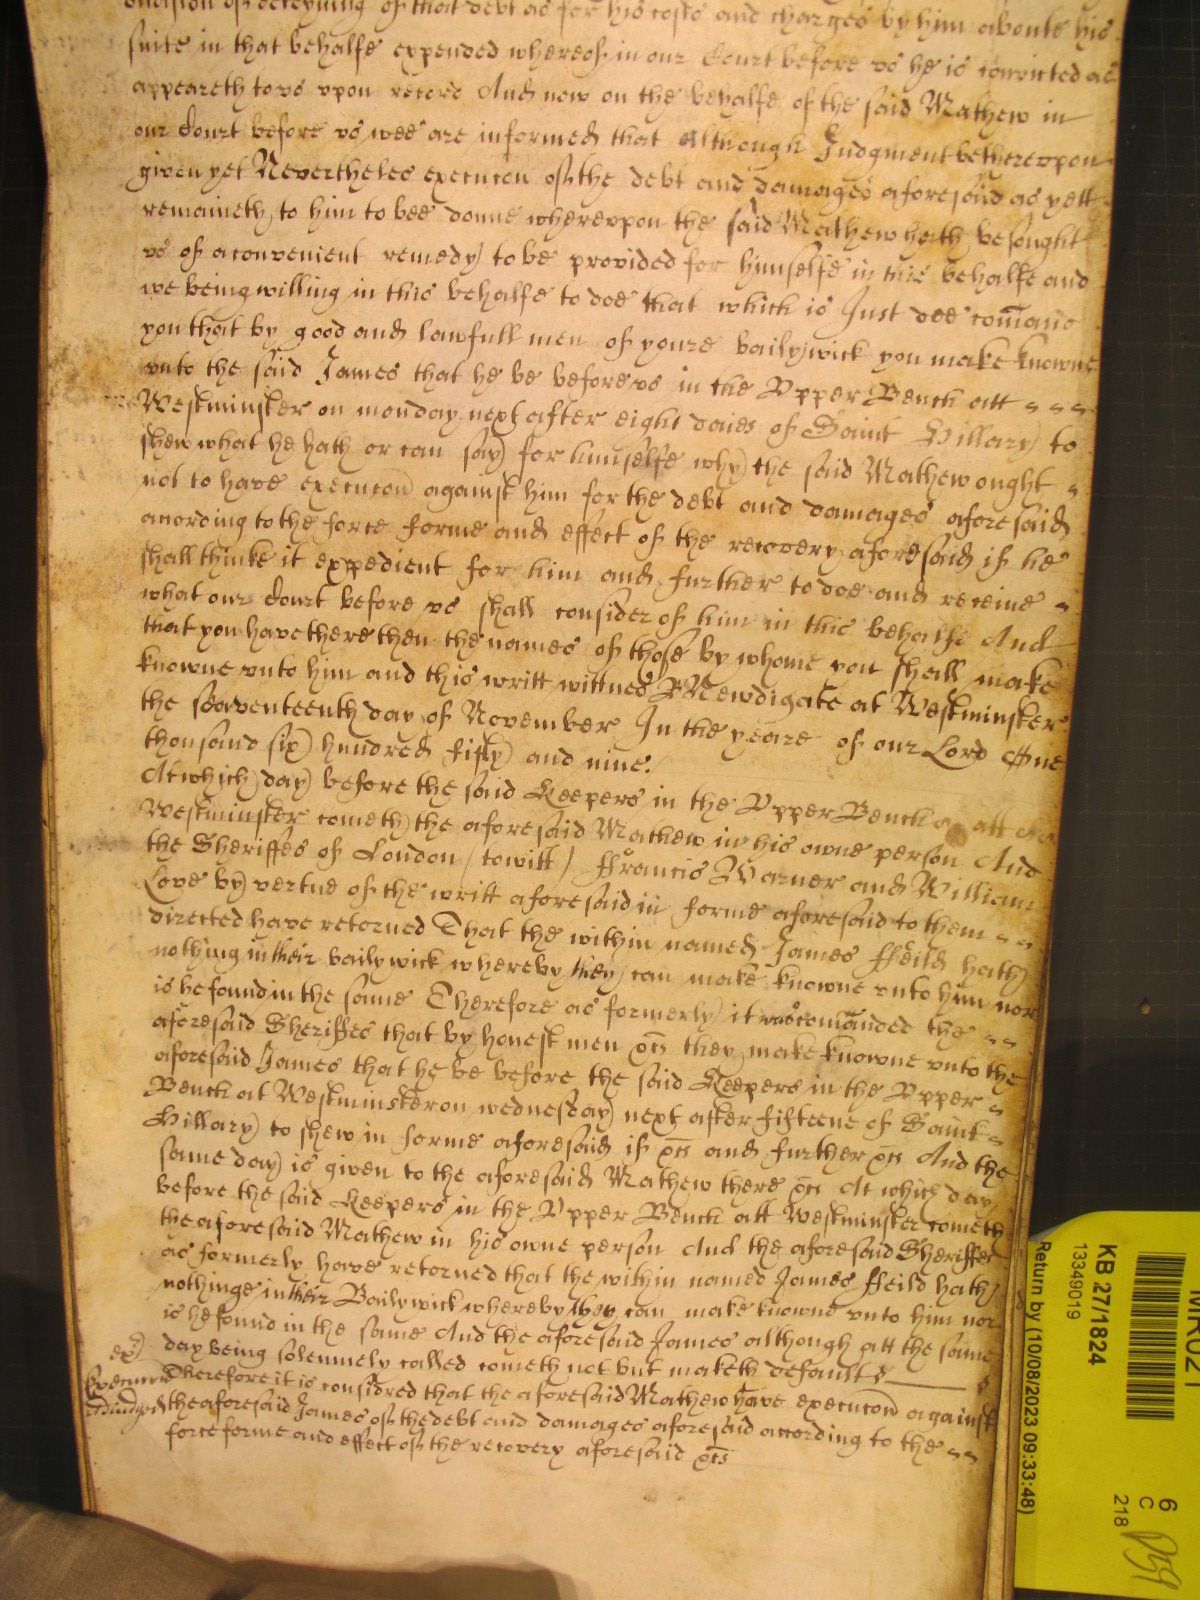 occasion of deteyning of that debt as for his costs and charges by him aboute his
suite in that behalfe expended whereof in our Court before us he is convicted as
appeareth to us upon record And now on the behalfe of the said Mathew in
our Court before us wee are informed that Although Judgment be thereupon
given yet Nevertheles execucon of the debt and damages aforesaid as yett
remaineth to him to bee donne whereupon the said Mathew hath besought
us of a convenient remedy to be provided for himselfe in this behalfe and
we being willing in this behalfe to doe that which is Just doe comand
you that by good and lawfull men of youre bailywick you make knowne
unto the said James that he be before us in the Upper Bench att
Westminster on monday next after eight daies of Saint Hillary to
shew what he hath or can say for himselfe why the said Mathew ought
not to have execucon against him for the debt and damages aforesaid
according to the force forme and effect of the recovery aforesaid if he
shall thinke it expedient for him and further to doe and receive
what our Court before us shall consider of him in this behalfe And
that you have there then the names of those by whome you shall make
knowne unto him and this writt wittnes R Newdigate at Westminster
the seaventeenth day of November In the yeare of our Lord One
thousand six hundred fifty and nine.
At which day before the said Keepers in the Upper Bench att
Westminster cometh the aforesaid Mathew in his owne person And
the Sheriffes of London (towitt) ffrancis Warner and William
Love by vertue of the writt aforesaid in forme aforesaid to them
directed have retorned That the within named James ffeild hath
nothing in their bailywick whereby they can make knowne unto him nor
is he found in the same Therefore as formerly it was comanded the
aforesaid Sheriffes that by honest men &cs they make knowne unto the
aforesaid James that he be before the said Keepers in the Upper
Bench at Westminster on wednesday next after fifteene of Saint
Hillary to shew in forme aforesaid if &cs and further &cs And the
same day is given to the aforesaid Mathew there &cs At which day
before the said Keepers in the Upper Bench att Westminster cometh
the aforesaid Mathew in his owne person And the aforesaid Sheriffes
as formerly have retorned that the within named James ffeild hath
nothinge in their Bailywick whereby they can make knowne unto him nor
is he found in the same And the aforesaid James although att the same
day being solemnely called cometh not but maketh default
Therefore it is considred that the aforesaid Mathew have execucon against
the aforesaid James of the debt and damages aforesaid according to the
force forme and effect of the recovery aforesaid &cs
KB 27/1824
13349019
Return by (10/08/2023 09:33:48)
6
C
218